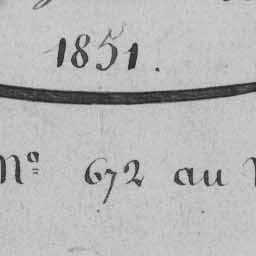 1851.
Nº 672 au